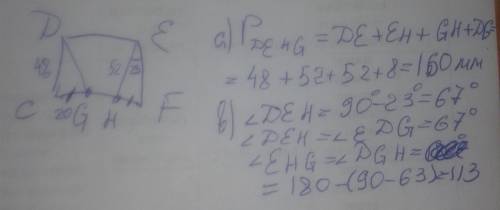 D E
48 52 23°
C 20 G H F
a) P DEHG = DE + EH + GH + DG =
= 48 + 52 + 52 + 8 = 160 мм
в) ∠DEH = 90° - 23° = 67°
∠DEH = ∠EDG = 67°
∠EHG = ∠DGH =
= 180 - (90 - 63) = 113